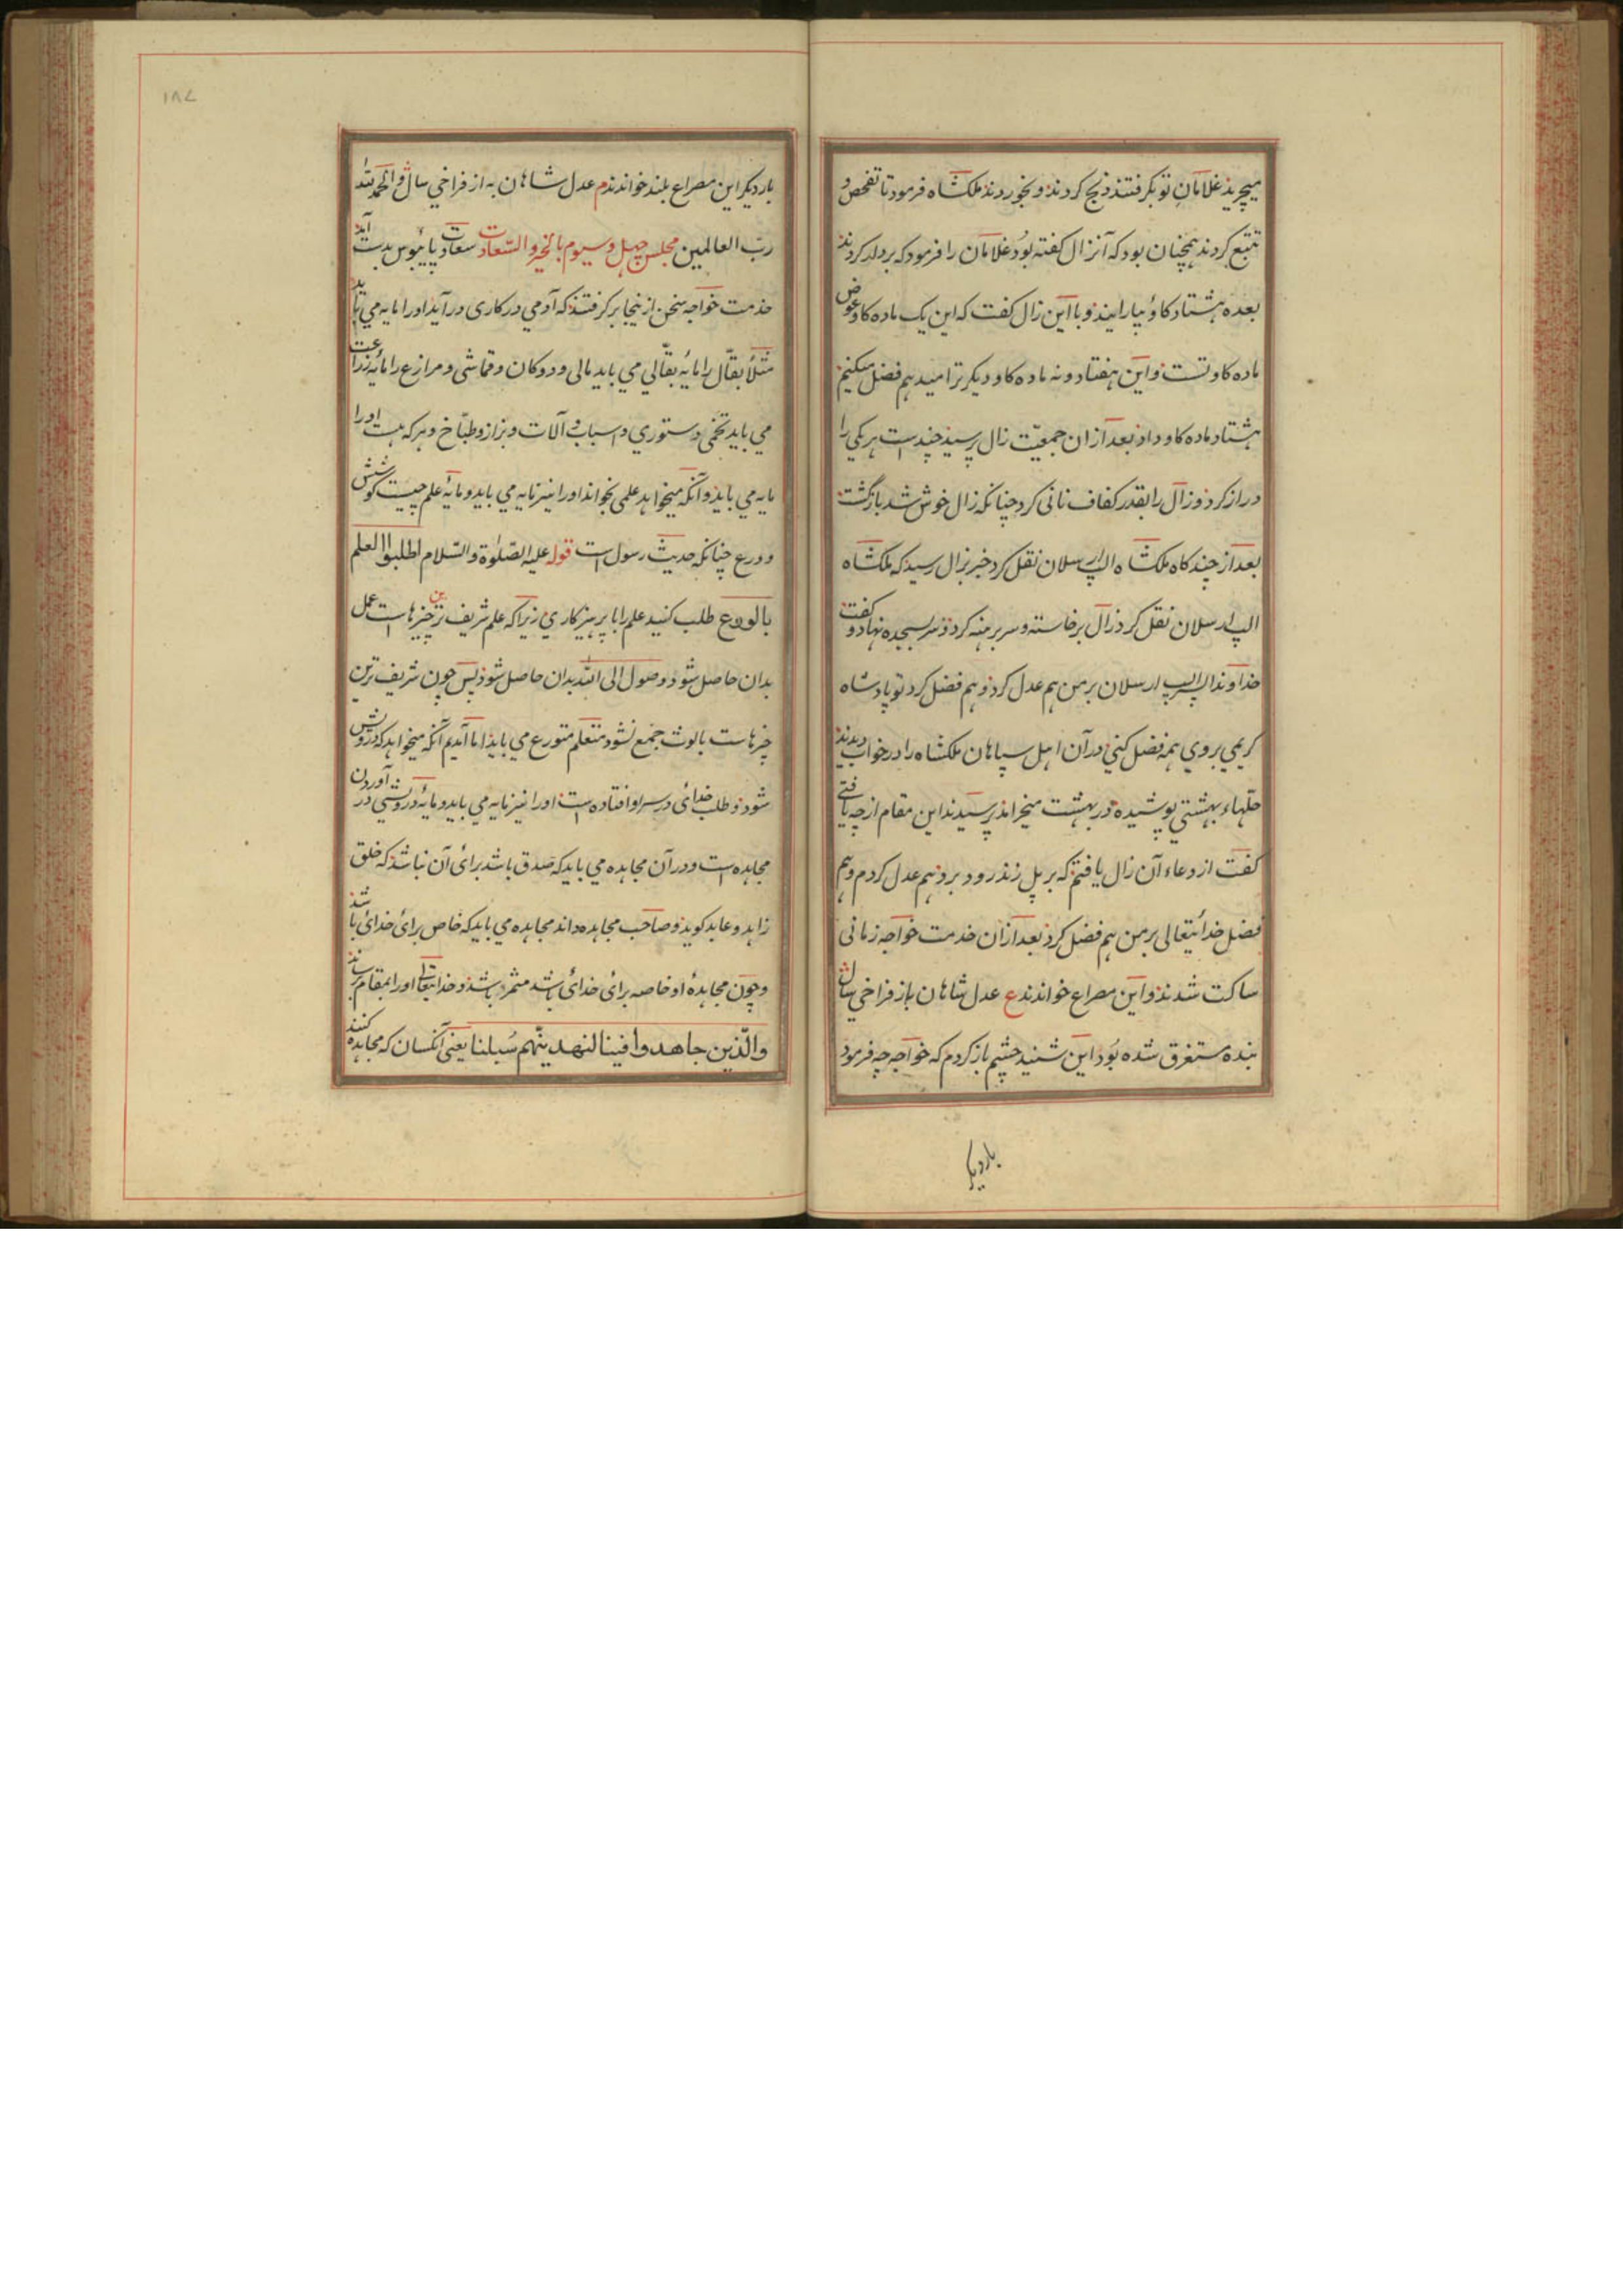 میچرید غلامان تو بکرفتند ذبح کردند و بخوردند ملکشاه فرمود تا تفحص و
تتبع کردند همچنان بود که آنزال کفته بود غلامان را فرمود که بردار کردند
بعده هشتاد کاو بیارایند و با این زال کفت که این یک ماده کاو عوض
ماده کاو تست و این هفتاد و نه ماده کاو دیکر ترا میدهم فضل میکنم
هشتاد ماده کاو داد بعد ازان جمعیّت زال پرسید چند است هریکی را
دراز کرد و زال را بقدر کفاف نانی کرد چنانکه زال خوش شد بازگشت
بعد از چند کاه ملکشاه الپ ارسلان نقل کرد خبر بزال رسید که ملکشاه
الپ ارسلان نقل کرد زال برخاسته و سر برهنه کرد و سر بسجده نهاد و کفت
خداوندا الپ ارسلان بر من هم عدل کرد و هم فضل کرد تو پادشاه
کریمی بروی همه فضل کنی در آن اهل سپاهان ملکشاه را در خواب دیدند
حلّهاء بهشتی پوشیده در بهشت میخرامد پرسیدند این مقام از چه یافتی
کفت از دعاء آن زال یافتم که بر پل زنذرود برو هم عدل کردم و هم
فضل خدایتعالی بر من هم فضل کرد بعد ازان خدمت خواجه زمانی
ساکت شدند و این مصراع خواندند ع عدل شاهان به از فراخی سال
بنده مستغرق شده بود این شنید چشم باز کردم که خواجه چه فرمود
باردیکر
۱۸۷
باردیکر این مصراع بلند خواندند م عدل شاهان به از فراخی سال و الحمد لله
ربّ العالمین مجلس چهل و سیوم بالخیر و السّعادت سعادت پایبوس بدست آمد
خدمت خواجه سخن ازینجا برکرفتند که آدمی در کاری درآید او را مایه می باید
مثلاً بقّال را مایه بقّالی می باید مالی و دوکان و قماشی و مزارع را مایه زراعت
می باید تخمی و ستوری و اسباب و آلات و بزاز و طبّاخ و هرکه هست او را
مایه می باید و آنکه میخواهد علمی بخواند او را نیز مایه می باید و مایه علم چیست کوشش
و ورع چنانکه حدیث رسول است قوله علیه الصّلوة و السّلام اطلبوا العلم
بالورع طلب کنید علم را با پرهیزکاری زیراکه علم شریف ترین چیزهاست عمل
بدان حاصل شود و وصول الی الله بدان حاصل شود پس چون شریف ترین
چیزهاست بالوث جمع نشود متعلّم متورع می باید اما آمدیم آنکه میخواهد که درویش
شود و طلب خدای در سر او افتاده است او را نیز مایه می باید و مایه درویشی در آوردن
مجاهده است و در آن مجاهده می باید که صدق باشد برای آن نباشد که خلق
زاهد و عابد کوید و صاحب مجاهده داند مجاهده می باید که خاص برای خدای باشد
و چون مجاهدهٔ او خاصه برای خدای باشد مثمر باشد و خدایتعالی او را بمقام رساند
والّذین جاهدوا فینا لنهدینّهم سُبلنا یعنی آنکسان که مجاهده کنند